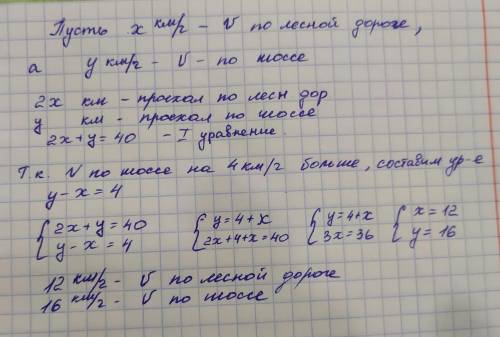 Пусть x км/г - V по лесной дороге,
а y км/г - V - по шоссе
2x км - проехал по лесн дор
y км - проехал по шоссе
2x+y=40 - I уравнение.
Т.к. V по шоссе на 4 км/г больше, составим ур-е
y-x=4
{2x+y=40 {y=4+x {y=4+x {x=12
{y-x=4 {2x+4+x=40 {3x=36 {y=16
12 км/г - V по лесной дороге
16 км/г - V по шоссе